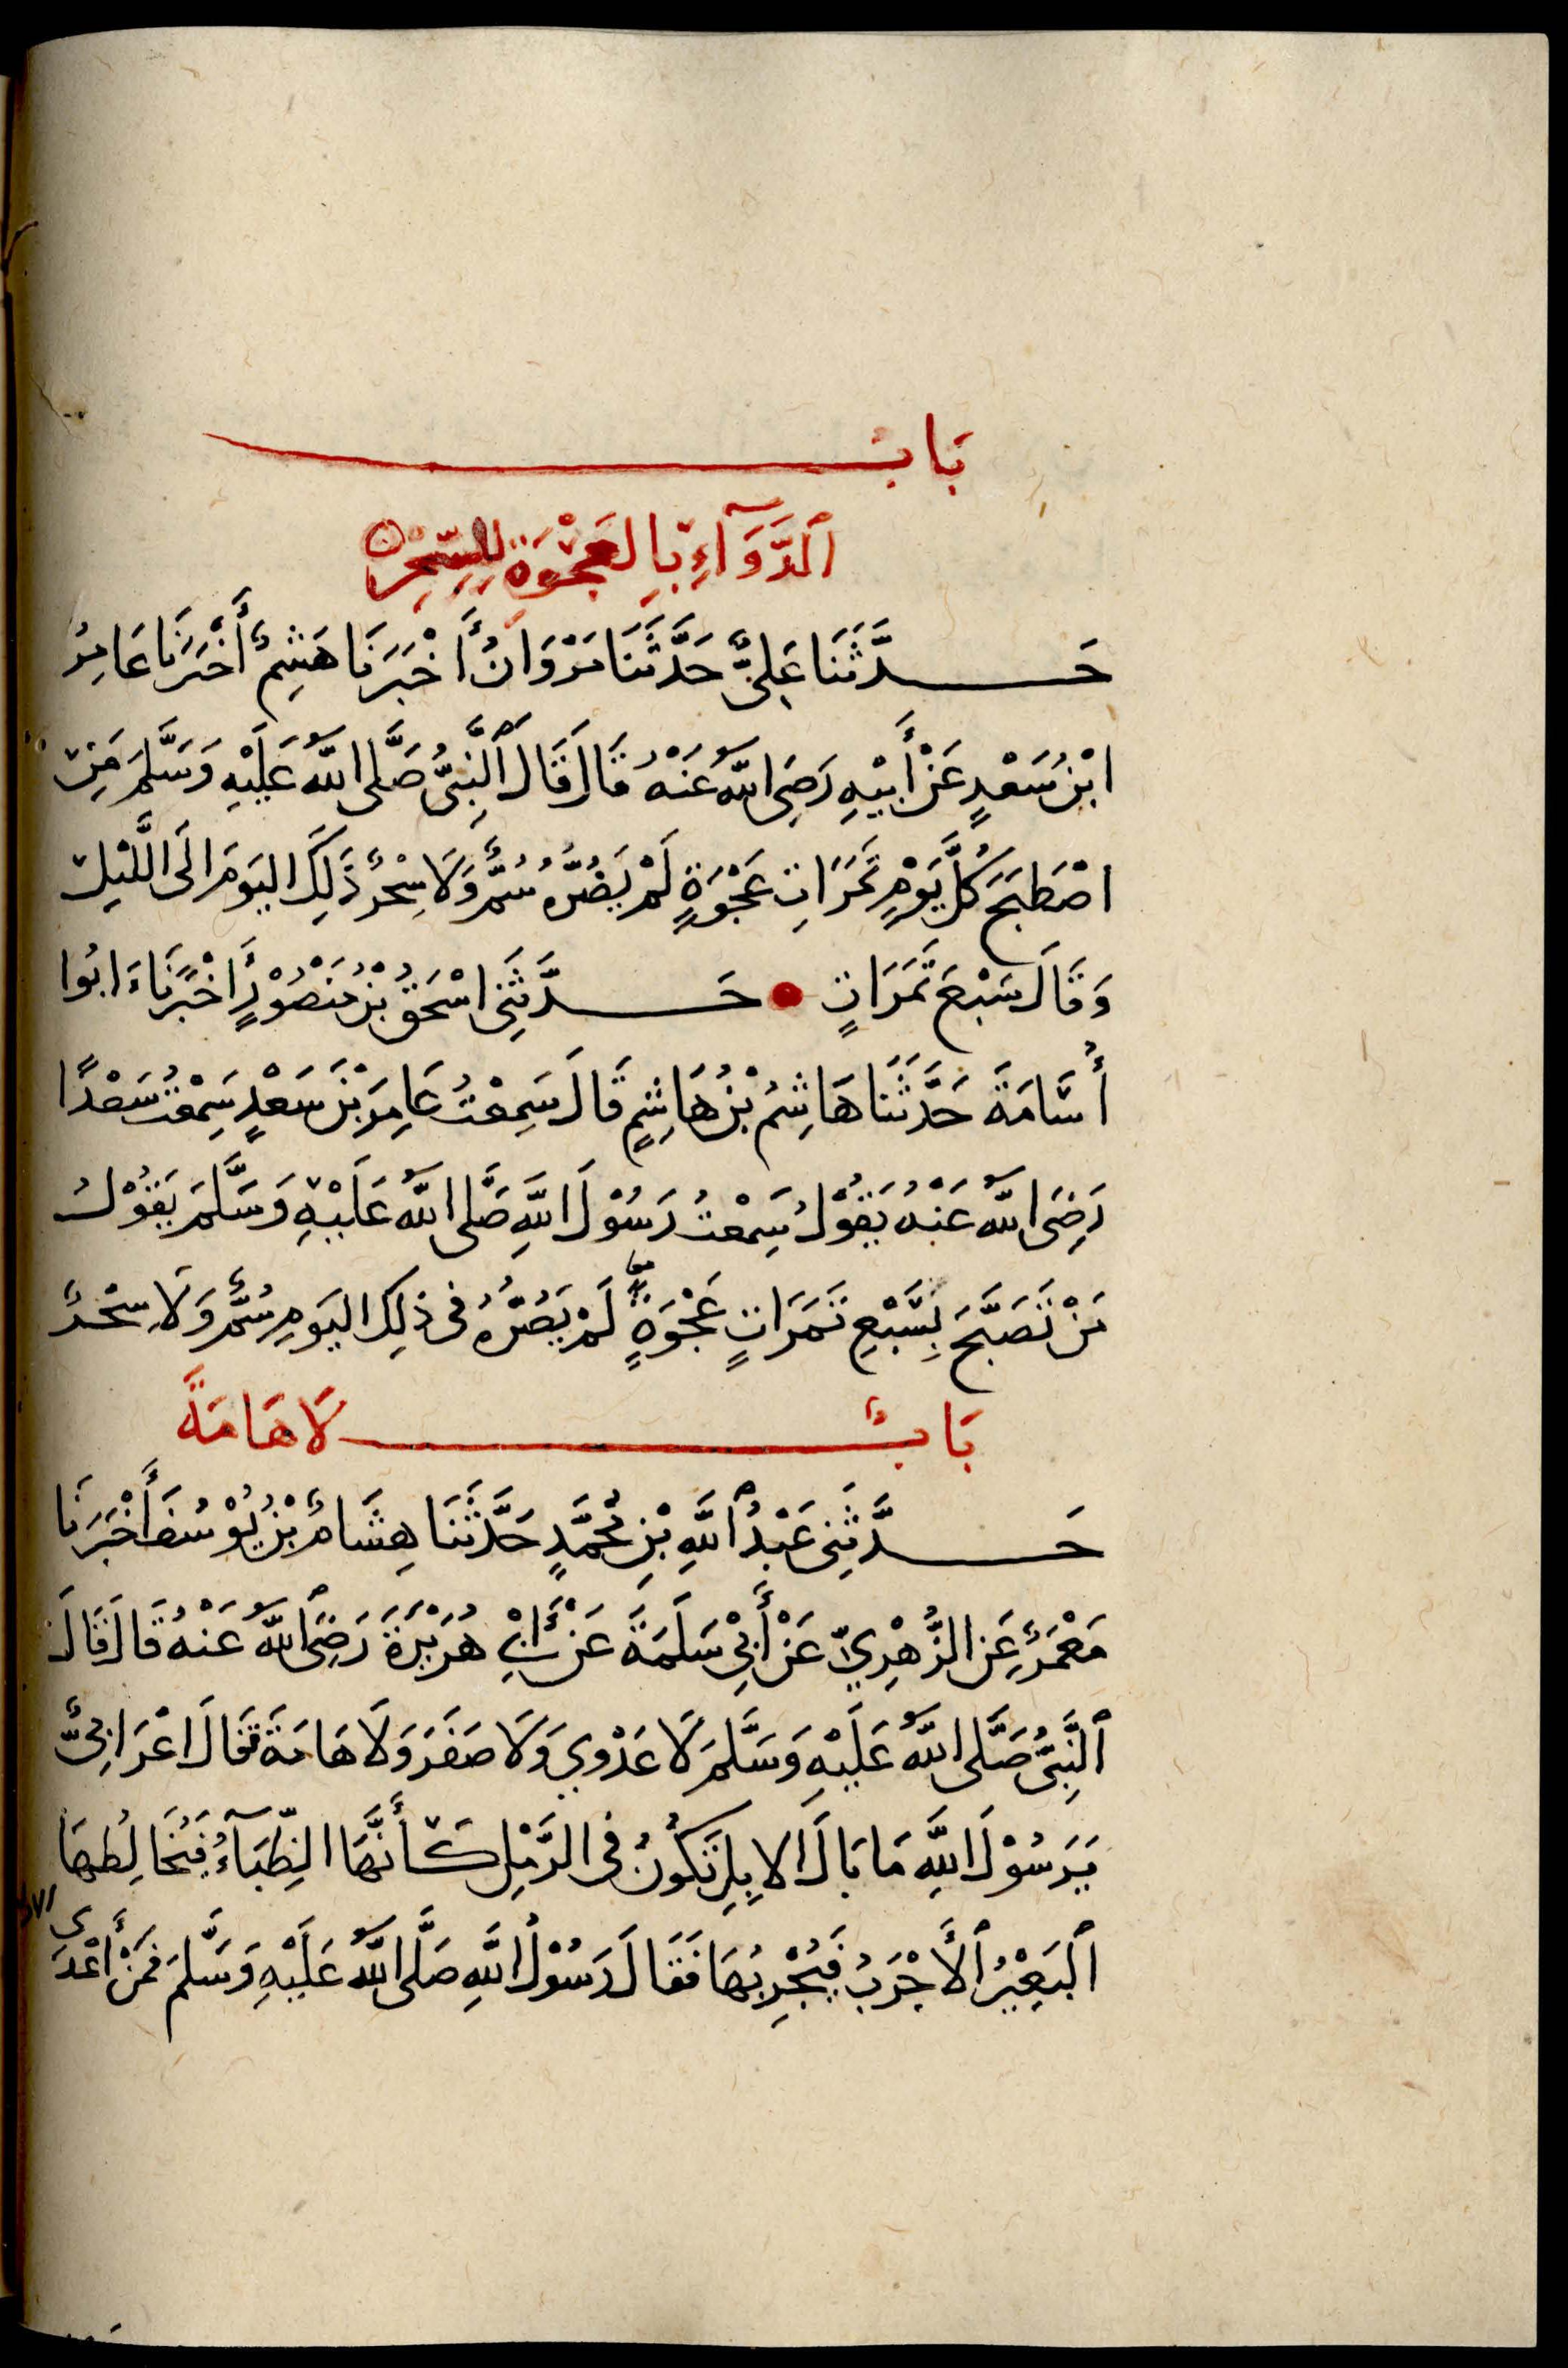 بَابُ
ٱلدَّوَآءِ بِالعَجْوَةِ لِلسِّحْرِ
حَدَّثَنَا عَلِىٌّ حَدَّثَنَا مَرْوَانُ أَخْبَرَنَا هَشِمٌ أَخْبَرَنَا عَامِرُ
ابْنُ سَعْدٍ عَنْ أَبِيْهِ رَضِىَ اللّٰهُ عَنْهُ قَالَ قَالَ ٱلنَّبِىُّ صَلَّى اللّٰهُ عَلَيْهِ وَسَلَّمَ مَنِ
اصْطَبَحَ كُلَّ يَوْمٍ تَمَرَاتٍ عَجْوَةٍ لَمْ يَضُرُّهُ سُمٌّ وَلَا سِحْرٌ ذَلِكَ اليَوْمَ الَى اللَّيْلِ
وَقَالَ سَبْعَ تَمَرَاتٍ حَدَّثَنِى اسْحَقُ بْنُ مَنْصُوْرٍ أَخْبَرَنَاءَ ابُوا
أُسَامَةَ حَدَّثَنَا هَاشِمُ بْنُ هَاشِمٍ قَالَ سَمِعْتُ عَامِرَ بْنَ سَعْدٍ سَمِعْتُ سَعْدًا
رَضِىَ اللّٰهُ عَنْهُ يَقُوْلُ سَمِعْتُ رَسُوْلَ اللَّهِ صَلَّى اللّٰهُ عَلَيْهِ وَسَلَّمَ يَقُوْلُ
مَنْ تَصَبَّحَ بِسَبْعِ تَمَرَاتٍ عَجْوَةٍ لَمْ يَضُرُّهُ فى ذلِكَ اليَوْمِ سُمٌّ وَلَا سِحْرٌ
بَابٌ لَا هَامَةَ
حَدَّثَنِى عَبْدُ ٱللَّهِ بْنِ مُحَمَّدٍ حَدَّثَنَا هِشَامُ بْنُ يُوْسُفَ أَخْبَرَنَا
مَعْمَرٌ عَنِ الزُّهْرِيِّ عَنْ أَبِىْ سَلَمَةَ عَنْ أَبِىْ هُرَيْرَةَ رَضِىَ ٱللّٰهُ عَنْهُ قَالَ قَالَ
ٱلنَّبِىُّ صَلَّى اللّٰهُ عَلَيْهِ وَسَلَّمَ لَا عَدْوي وَلَا صَفَرَ وَلَا هَامَةَ فَقَالَ اعْرَابِىٌّ
يَرَسُوْلَ اللَّهِ مَا بَالَ الابِلِ تَكُوْنُ فى الرَّمْلِ كَأَنَّهَا الظِّبَآءُ فَيُخَالِطُهَا
ٱلبَعِيْرُ ٱلأَجْرَبُ فَيُجْرِبُهَا فَقَالَ رَسُوْلُ ٱللَّهِ صَلَّى اللّٰهُ عَلَيْهِ وَسَلَّمَ فَمَنْ أَعْدَى